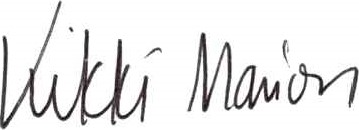 Kikki Marion